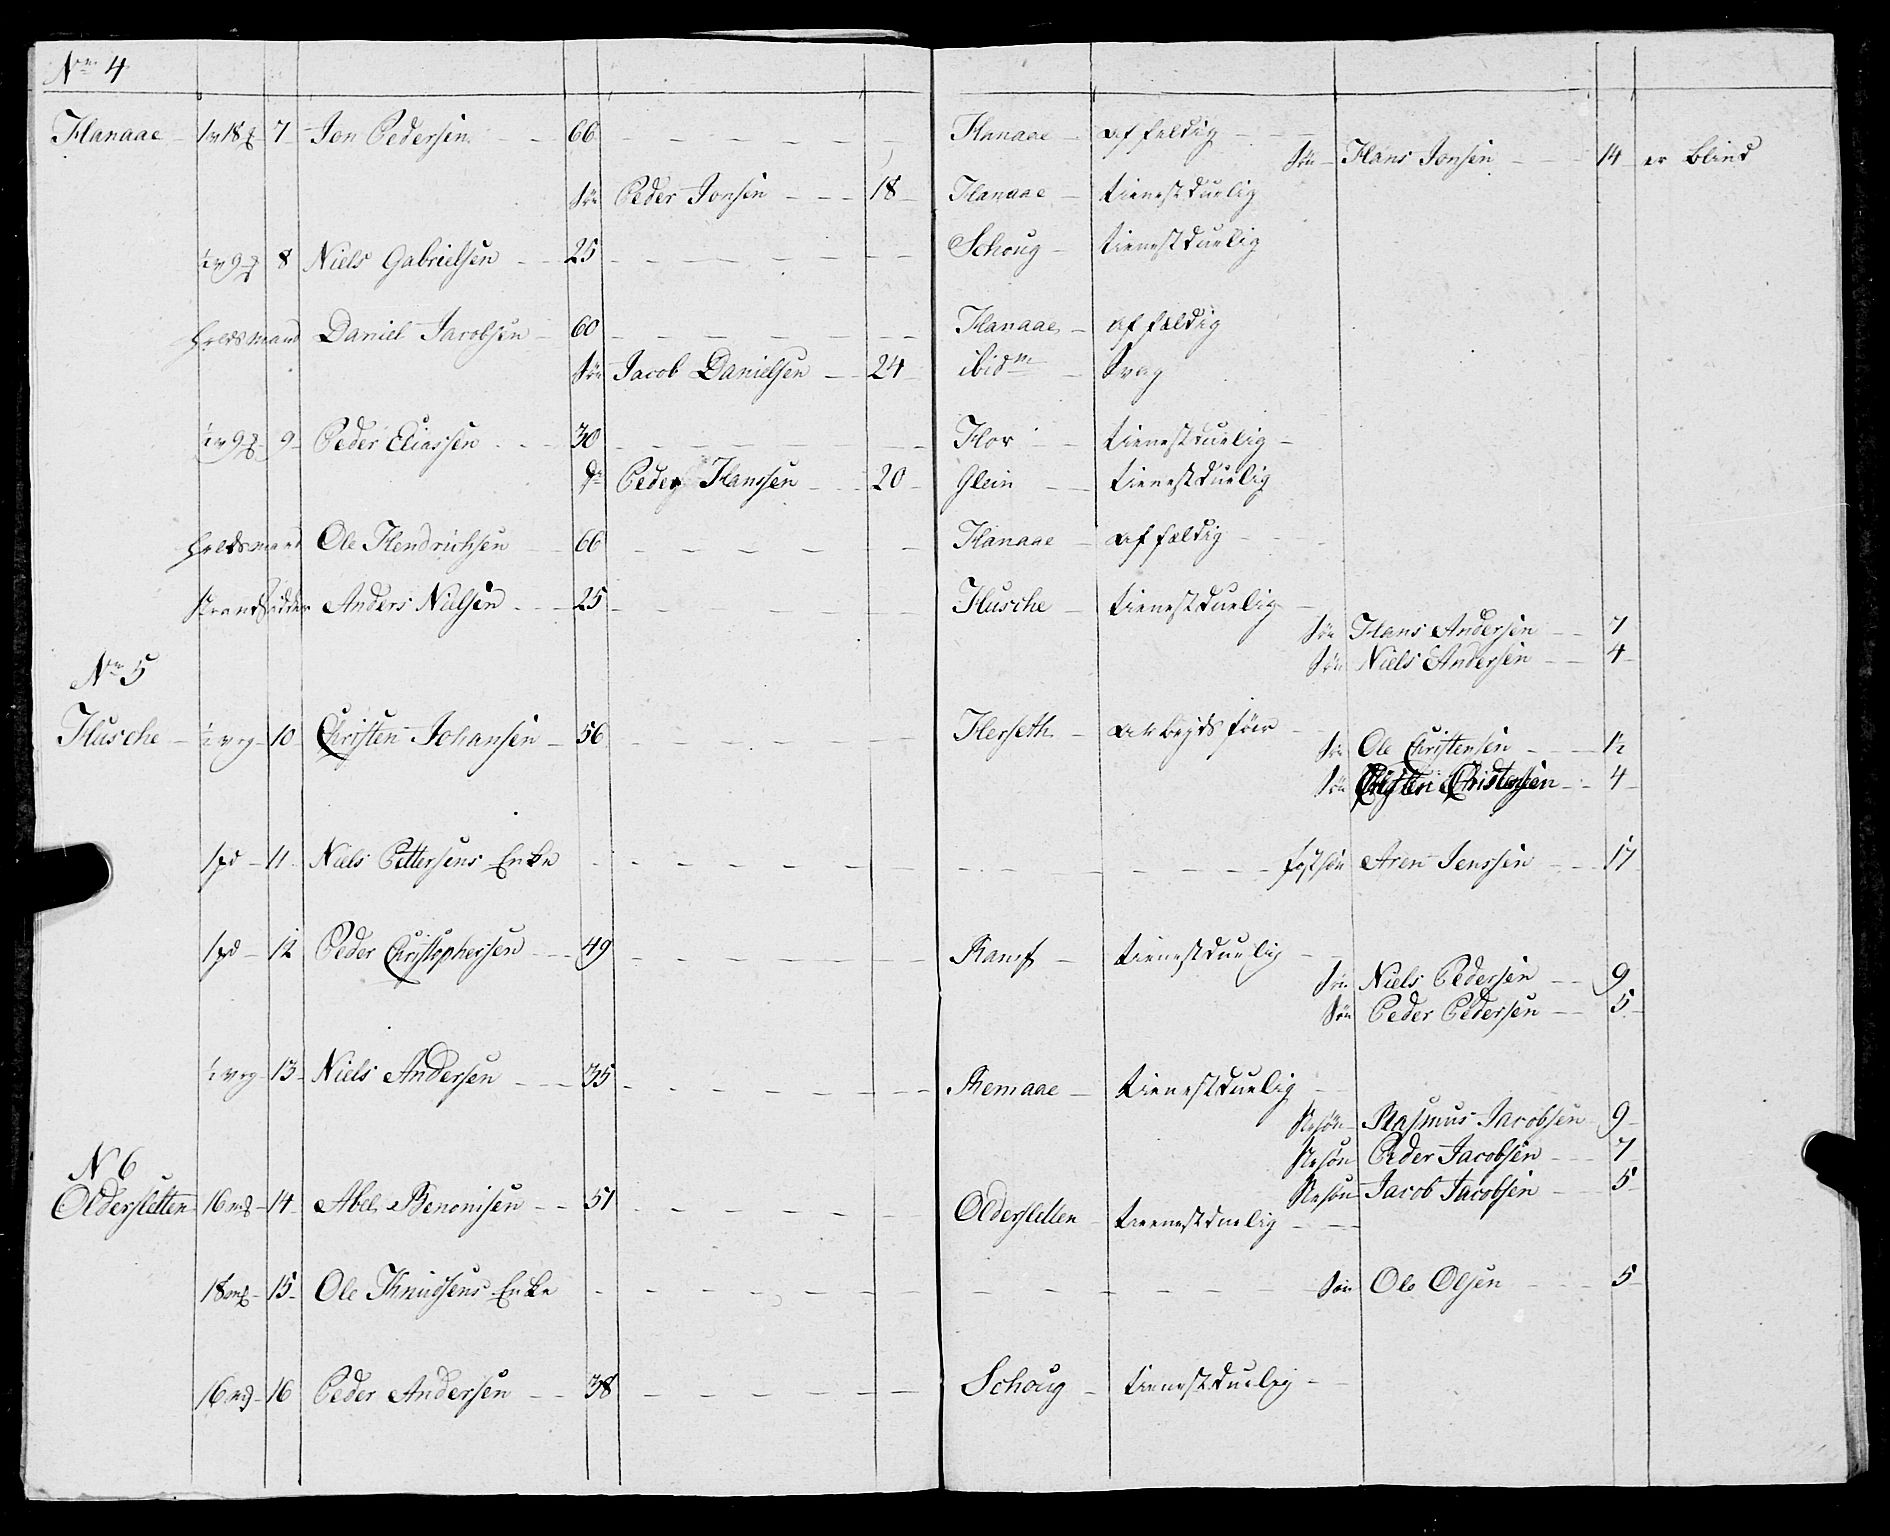 No 4
Hanaae 1 v 18 7 Jon Pedersen 66 Hanaae affeldig
Søn Hans Jonsen 14 er blind
Søn Peder Jonsen 18 Hanaae tienestduelig
8 Niels Gabrielsen 25 Schoug tienestduelig
Holdsmand Daniel Jacobsen 60 Hanaae affældig
Søn Jacob Danielsen 24 ibidm Svag
9 Peder Eliassen 30 Flov tienestduelig
Peder Hanssen 20 Glein tienestduelig
Holdsmand Ole Hendrichsen 66 Hanaae affældig
Strandsidder Anders Nielsen 25 Husche tienestduelig
Søn Hans Andersen 7
Søn Niels Andersen 4
No 5
Husche 10 Christen Johansen 56 Herseth arbejdsføer
Søn Ole Christensen 12
Søn Christen Christensen 4
1 pd 11 Niels Pettersens Enke Fostsøn Aren Jenssen 17
1 pd 12 Peder Christophersen 49 Ramf tienestduelig
Søn Niels Pedersen 9
Søn Peder Pedersen 5
13 Niels Andersen 35 Remaae tienestduelig
Stesøn Rasmus Jacobsen 9
Stesøn Peder Jacobsen 7
Stesøn Jacob Jacobsen 5
N 6
Oldersletten 16 14 Abel Benonisen 51 Oldersletten tienestduelig
18 15 Ole Knudsens Enke Søn Ole Olsen 5
16 16 Peder Andersen 38 Schoug tienestduelig